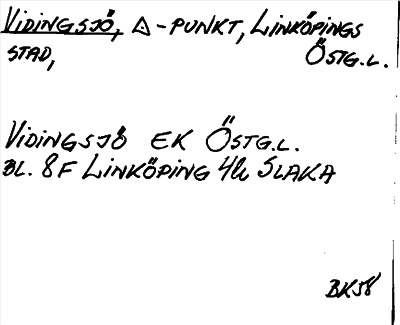 VIDINGSJÖ, △-PUNKT, LINKÖPINGS
STAD, ÖSTG.L.
VIDINGSJÖ EK ÖSTG.L.
BL. 8F LINKÖPING 4h SLAKA
BK58